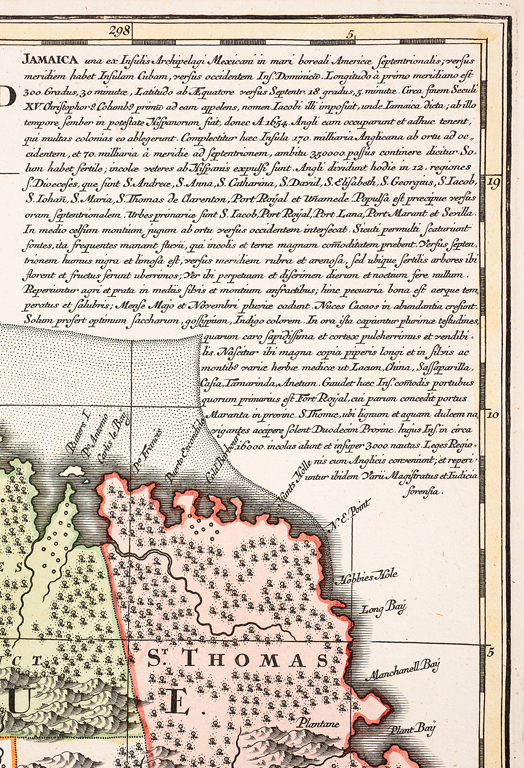 298
5
JAMAICA una ex Insulis Archipelagi Mexicani in mari boreali Americæ septentrionalis; versus
meridiem habet Insulam Cubam, versus occidentem Insˡ Dominicͫ. Longitudo à primo meridiano est
300. Gradus, 30 minutæ, Latitudo ab Æquatore versus Septentr. 18. gradus, 5. minutæ. Circa finem Seculi
XV. Christophorˢ Columbˢ primͦ ad eam appelens, nomen Iacobi illi imposuit, unde Jamaica dicta; ab illo
tempore sember in potestate Hispanorum fuit, donec Aͦ 1654. Angli eam occuparunt et adhuc tenent,
qui multas colonias eo ablegerunt. Complectitur hæc Insula 170. milliaria Anglicana ab ortu ad oc,
cidentem, et 70. milliaria à meridie ad septentrionem, ambitu 350000. passus continere dicitur So,
lum habet fertile; incolæ veteres ab Hispanis expulsi sunt Angli dividunt hodie in 12. regiones
s. Dioeceses, quæ sunt S. Andreæ, S. Anna, S. Catharina, S. David, S. Elisabeth, S. Georgius, S. Iacob,
S. Iohañ, S. Maria, S. Thomas de Clarenton, Port Roijal et Uñamede Populsa est præcipue versus
oram septentrionalem. Urbes primariæ sunt S. Iacob, Port Roijal, Port Lana, Port Marant et Sevilla.
In medio cessum montium jugum ab ortu versus occidentem intersecat. Sicuti permulti scaturiunt
fontes, ita frequentes manant fluvii, qui incolis et terræ magnam com̃oditatem præbent. Versus septen,
trionem humus nigra et limosa est, versus meridiem rubra et arenosa, sed ubique fertilis arbores ibi
florent et fructus ferunt uberrimos; Ver ibi perpetuum et discrimen dierum et noctium fere nullum.
Reperiuntur agri et prata in mediis silvis et montium anfractibus; hinc pecuaria bona est aerque tem,
peratus et salubris; Mense Majo et Novembri pluviæ cadunt. Nuces Cacaos in abundantia crescunt.
Solum profert optimum saccharum, gossijpium, Indigo colorem. In ora ista capiuntur plurimæ testudines,
quarum caro sapidissima et cortex pulcherrimus et vendibi,
lis Nascitur ibi magna copia piperis longi et in silvis ac
montibˢ variæ herbæ medicæ ut Lacum, China, Salsaparilla,
Casia, Tamarinda, Anetum. Gaudet hæc Insˡ com̃odis portubus
quorum primarius est Fort Roijal, cui parum concedit portus
Maranta in provinc. S. Thomæ, ubi lignum et aquam dulcem na,
vigantes accipere solent Duodecim Provinc. hujus Insˡ in circa
16000. incolas alunt et insuper 3000 nautas. Leges Regio,
nis cum Anglicis conveniunt; et reperi,
untur ibidem Varii Magistratus et Iudicia
forensia.
19
10
5
Pt Antonio
Pt Francis
Cold Harbour
Hants Hills
N. E. Point
Hobbies Hole
Long Baij
ST THOMAS
CT
S
Manchanell Baij
U E
Plantane
Plant Baij